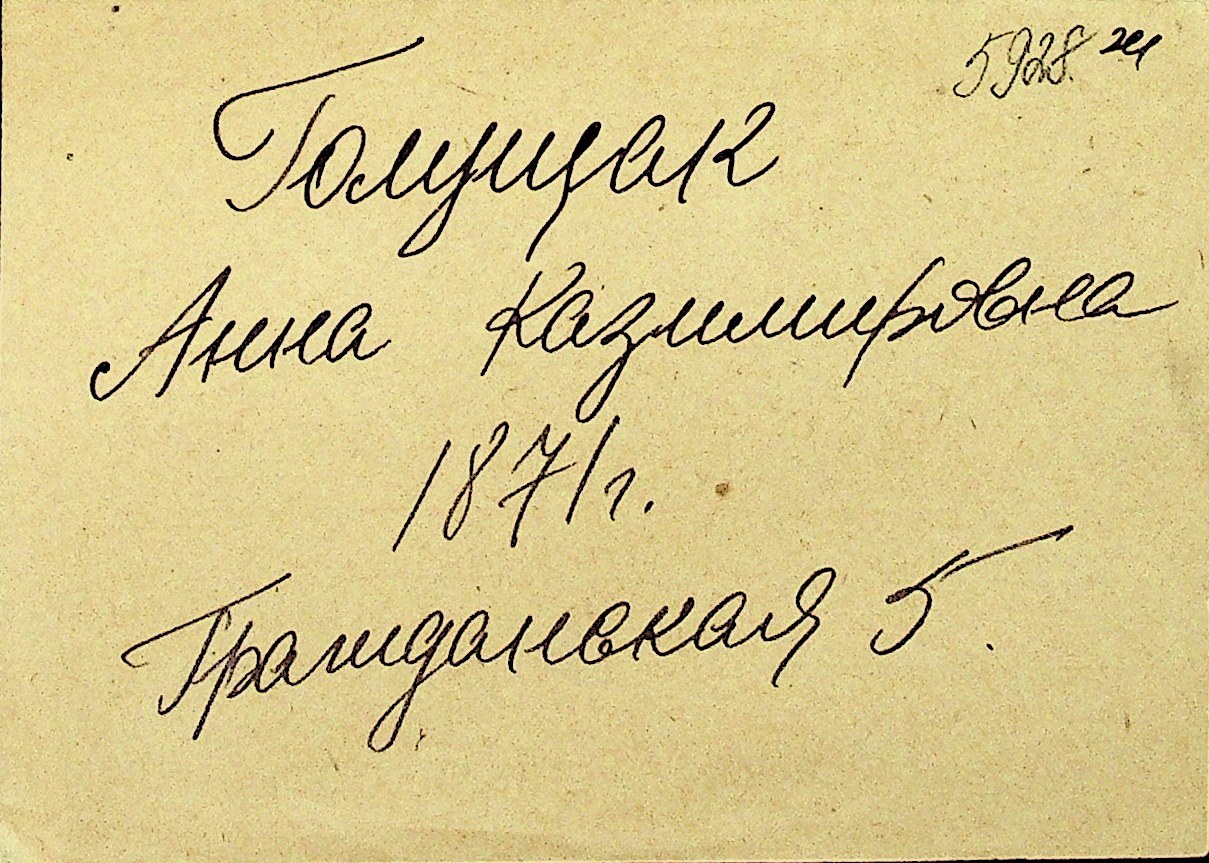 5928 ж
Голущак
Анна Казимировна
1871г.
Гражданская 5.